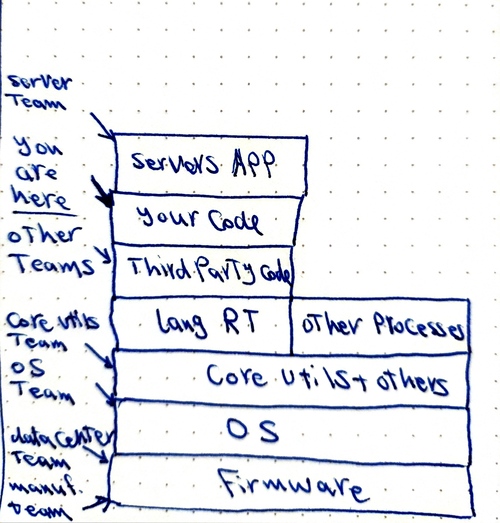 server
Team
you
are
here
other
Teams
core utils
Team
OS
Team
datacenter
Team
manuf.
team
servers APP
your Code
Third Party Code
lang RT
other Processes
Core utils + others
OS
Firmware